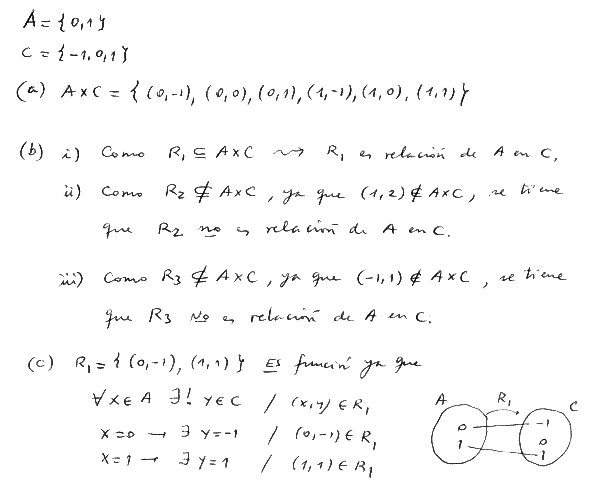 A = {0,1}
C = {-1,0,1}
(a) A×C = { (0,-1), (0,0), (0,1), (1,-1), (1,0), (1,1) }
(b) i) Como R₁ ⊆ A×C ⇝ R₁ es relación de A en C.
ii) Como R₂ ⊄ A×C, ya que (1,2) ∉ A×C, se tiene
que R₂ no es relación de A en C.
iii) Como R₃ ⊄ A×C, ya que (-1,1) ∉ A×C, se tiene
que R₃ NO es relación de A en C.
(c) R₁ = { (0,-1), (1,1) } ES función ya que
∀ x ∈ A ∃! y ∈ C / (x,y) ∈ R₁
x=0 → ∃ y=-1 / (0,-1) ∈ R₁
x=1 → ∃ y=1 / (1,1) ∈ R₁
A R₁ C
0 -1
1 0
1